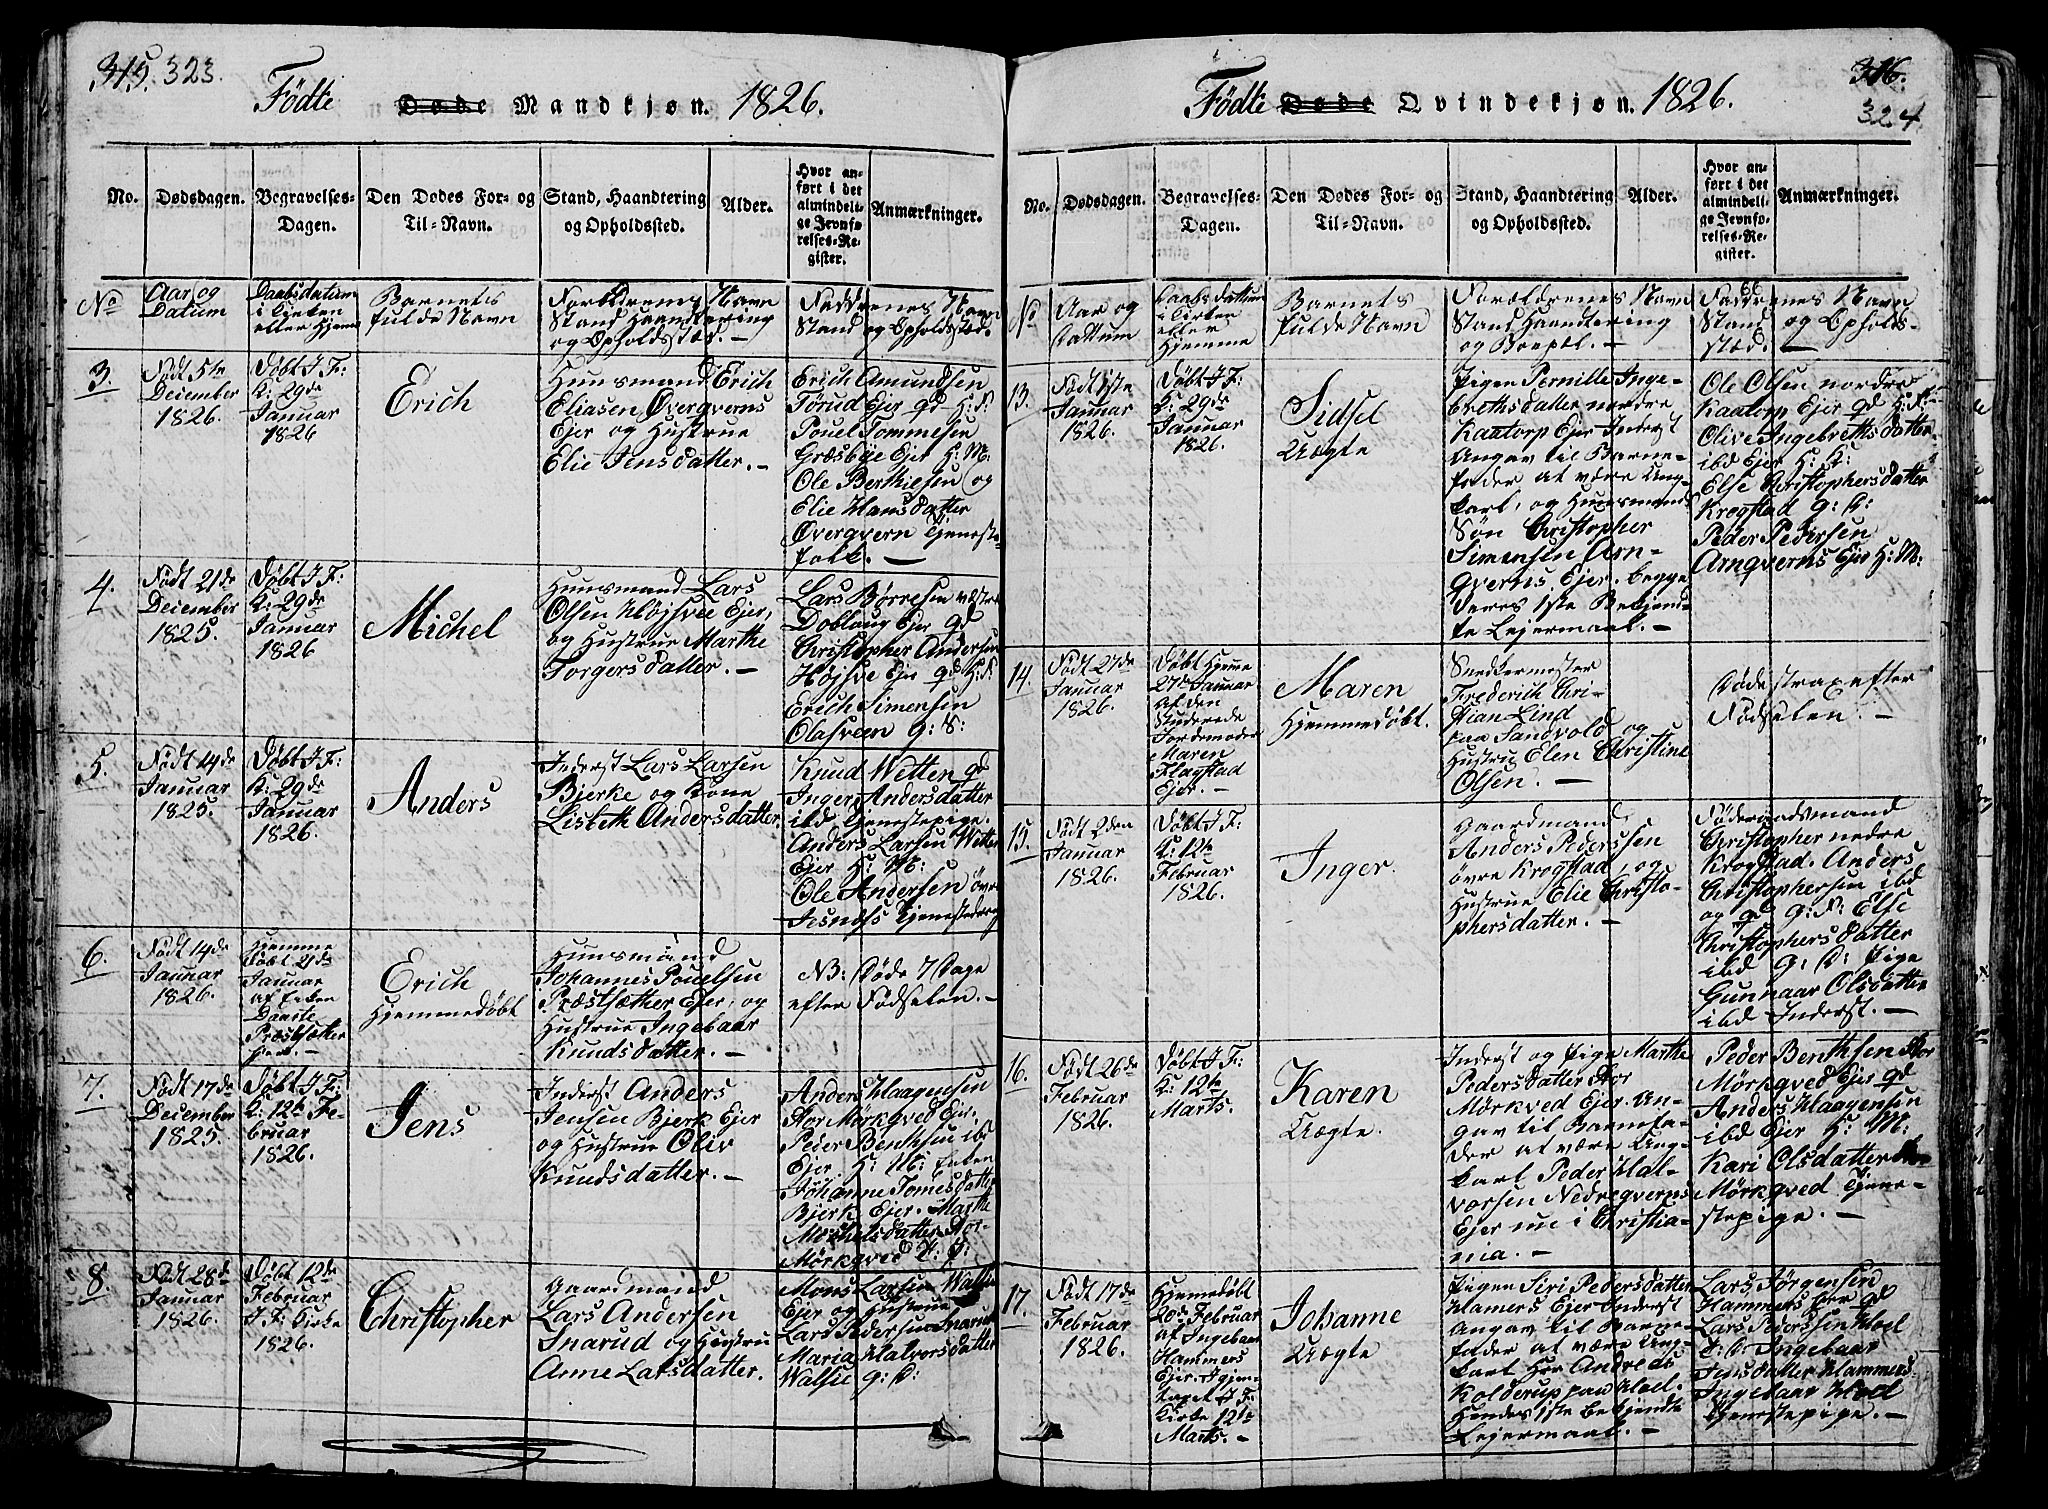 315. 323.
Fødte Døde Mandkjøn. 1826.
No.
Dødsdagen.
Begravelses-
Dagen.
Den Dødes For- og
Til-Navn.
Stand, Haandtering
og Opholdssted.
Alder.
Hvor an-
ført i det
almindeli-
ge Jevnfø-
relses-Re-
gister.
Anmærkninger.
No
Aar og
Datum
Daabsdatum
i Kirken
eller Hjemme
Barnets
fulde Navn
Forældrenes Navn
Stand Haandtering
og Opholdssted. -
Faddrenes Navn
Stand og Opholdsted.
3.
Født 5te
December
1826.
Døbt I F:
K: 29de
Januar
1826
Erich
Huusmand Erich
Eliasen Øvergverns
Ejer og Hustrue
Elie Jensdatter. -
Erich Amundsen
Tørud Ejer gd H: F:
Pouel Tommesen
Græsbye Ejer H: M:
Ole Berthelsen og
Elie Hansdatter
Øvergvern Tjeneste
folk. -
4.
Født 21de
December
1825.
Døbt I F:
K: 29de
Januar
1826
Michel
Huusmand Lars
Olsen Højsvee Ejer,
og Hustrue Marthe
Torgersdatter. -
Lars Børresen væstre
Doblaug Ejer gd
Christopher Andersen
Højsve Ejer gd H: F:
Erich Simensen
Olasveen g: S:
5.
Født 14de
Januar
1825.
Døbt I F:
K: 29de
Januar
1826.
Anders
Inderst Lars Larsen
Bjerke og Kone
Lisbeth Andersdatter.
Knud Wetten gd
Inger Andersdatter
ibd Tjenestepige.
Anders Larsen Wetten
Ejer H: M:
Ole Andersen øvre
Jesness Tjenestedreng
6.
Født 14de
Januar
1826.
Hjemme
døbt 21de
Januar
af Enken
Danste
Præstsæther
Ejer. -
Erich
Hjemmedøbt
Huusmand
Johannes Pouelsen
Præstsæther Ejer, og
Hustrue Ingebaar
Knudsdatter. -
NB: Døde 7 Dage
efter Fødselen. -
7.
Født 17de
December
1825.
Døbt I F:
K: 12te Fe-
bruar
1826.
Jens
Inderst Anders
Jensen Bjerk Ejer
og Hustrue Oliv
Knudsdatter. -
Anders Haagensen
Stor Mørkqved Ejer.
Peder Benthsen ibd
Ejer. H: M: Enken
Johanne Tomesdatter
Bjerk Ejer. Marthe
Michelsdatter Stor-
Mørkqved P:
8.
Født 28de
Januar
1826.
Døbt 12de
Februar
I F: Kirke
1826.
Christopher
Gaardmand
Lars Andersen
Snarud og Hustru
Anne Larsdatter.
Mons Larsen Walsie
Ejer og Hustrue
Lars Pedersen Snarud
Maria Halvorsdatter
Walsie g:
316.
324
Fødte Døde Qvindekjøn. 1826.
No.
Dødsdagen.
Begravelses-
Dagen.
Den Dødes For- og
Til-Navn.
Stand, Haandtering
og Opholdssted.
Alder.
Hvor an-
ført i det
almindeli-
ge Jevnfø-
relses-Re-
gister.
Anmærkninger.
No
Aar og
Dattum
Daabs Dattum
i Kirken
eller
Hjemme
Barnets
fulde Navn
Forældrenes Navn
Stand Haandtering
og Boepæl. -
66
Faddrenes Navn
Stand og Opholds-
stæd. -
13.
Født 1ste
Januar
1826.
Døbt I F:
K: 29de
Januar
1826.
Sidsel
Uægte
Pigen Pernille Inge-
brethsdatter nordre
Kaatorp Ejer Inderst
Angav til Barne-
fader at være Ung-
karl, og Huusmands
Søn Christopher
Simensen Arn-
qverns Ejer. begge
deres 1ste Bekjend-
te Lejermaal. -
Ole Olsen nordre
Kaatorp Ejer gd H: F:
Olive Ingebrethsdatter
ibd Ejer H: K:
Else Christophersdatter
Krogstad g: P:
Peder Pedersen
Arnqverns Ejer H: M:
14.
Født 27de
Januar
1826.
Døbt Hjemme
27de Januar
af den
Studerede
Jordemoder
Maren
Flagstad
Ejer. -
Maren
Hjemmedøbt.
Snedkermester
Frederich Chri-
stian Lind
paa Sandvold og
Hustru Elen Christine
Olsen. -
Døde strax efter
Fødselen. -
15.
Født 2den
Januar
1826.
Døbt I F:
K: 12te
Februar
1826.
Inger.
Gaardmand
Anders Pederssen
øvre Krogstad, og
Hustrue Elie Christo-
phersdatter. -
Føderaadsmand
Christopher nedre
Krogstad. Anders
Christophersen ibd
og gd g: F: Else
Christophersdatter
ibd g: P: Pige
Gunnaar Olsdatter
ibd Inderst. -
16.
Født 26de
Februar
1826.
Døbt I F:
K: 12te
Marts.
Karen
Uægte.
Inderst og Pige Marthe
Pedersdatter Stor
Mørkved Ejer. An-
gav til Barnefa-
der at være Ung-
karl Peder Hal-
vorsen Nedregverns
Ejer nu i Christia-
nia. -
Peder Benthsen Stor
Mørkqved Ejer gd
Anders Haagensen
ibd Ejer H: M:
Kari Olsdatter
Mørkqved Tjene-
stepige. -
17.
Født 17de
Februar
1826.
Hjemmedøbt
20de Februar
af Ingebaar
Hammers
Ejer. Igjen-
taget I F:
Kirke 12te
Marts. -
Johanne
Uægte
Pigen Siri Pedersdatter
Hamers Ejer Inderst
Angav til Barne-
fader at være Ung-
karl Her Andreas
Kolderup paa Hoel.
Hendes 1ste bekjendte
Lejermaal. -
Lars Jørgensen
Hammers Ejer gd
Lars Pederssen Hoel
Ingebaar
Jensdatter Hammers
Ingebaar Hoel
Tjenstepige. -